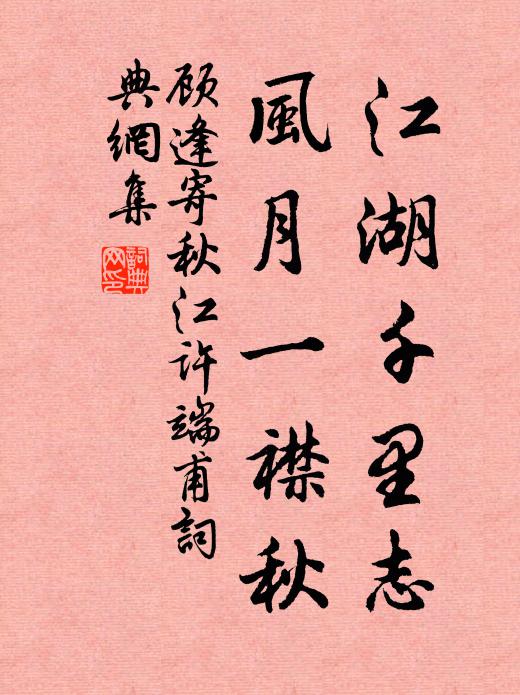 江湖千里志
風月一襟秋
顾逢寄秋江許端甫詞
典網集
詞典
网印